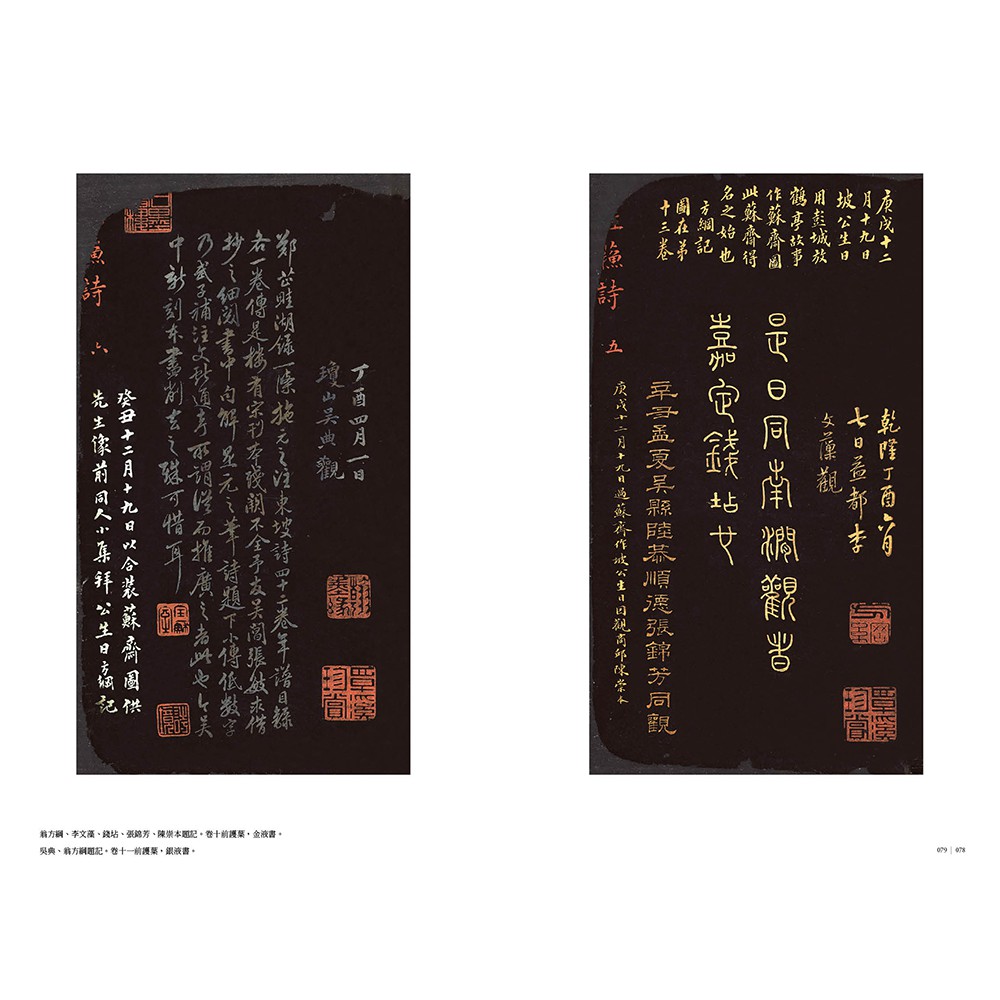 庚戌十二
月十九日
坡公生日
用彭城放
鶴亭故事
作蘇齋圖
此蘇齋得
名之始也
方綱記
圖在弟
十三卷
乾隆丁酉六月
七日益都李
文藻觀
是日同南澗觀者
嘉定錢坫也
辛丑孟夏吳縣陸恭順德張錦芳同觀
庚戌十二月十九日過蘇齋作坡公生日因觀商邱陳崇本
漁詩 五
覃溪珍賞
丁酉四月一日
瓊山吳典觀
鄭芷畦湖錄一條施元之注東坡詩四十二卷年譜目錄
各一卷傳是樓有宋刊本殘闕不全予友吳閶張敏求借
抄之細閱書中句解是元之筆詩題下小傳低數字
乃武子補注文獻通考所謂從而推廣之者此也今吳
中新刻本盡削去之殊可惜耳
癸丑十二月十九日以合裝蘇齋圖供
先生像前同人小集拜公生日方綱記
漁詩 六
覃溪珍賞
翁方綱、李文藻、錢坫、張錦芳、陳崇本題記。卷十前護葉，金液書。
吳典、翁方綱題記。卷十一前護葉，銀液書。
079 | 078